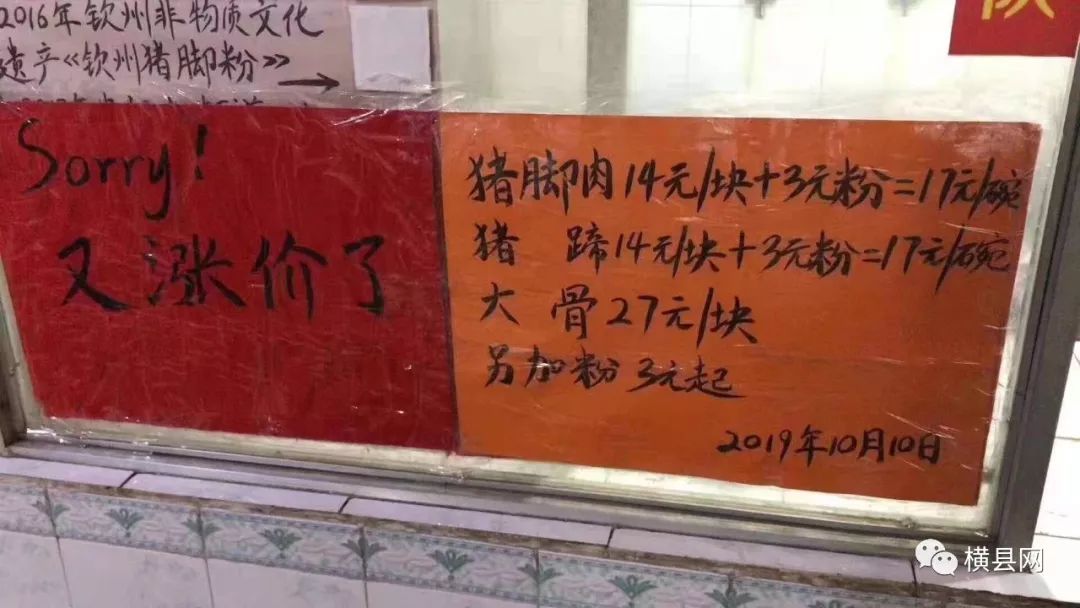 2016年钦州非物质文化
遗产《钦州猪脚粉》
Sorry!
又涨价了
猪脚肉14元/块+3元粉=17元/碗
猪 蹄14元/块+3元粉=17元/碗
大 骨27元/块
另加粉 3元起
2019年10月10日
横县网